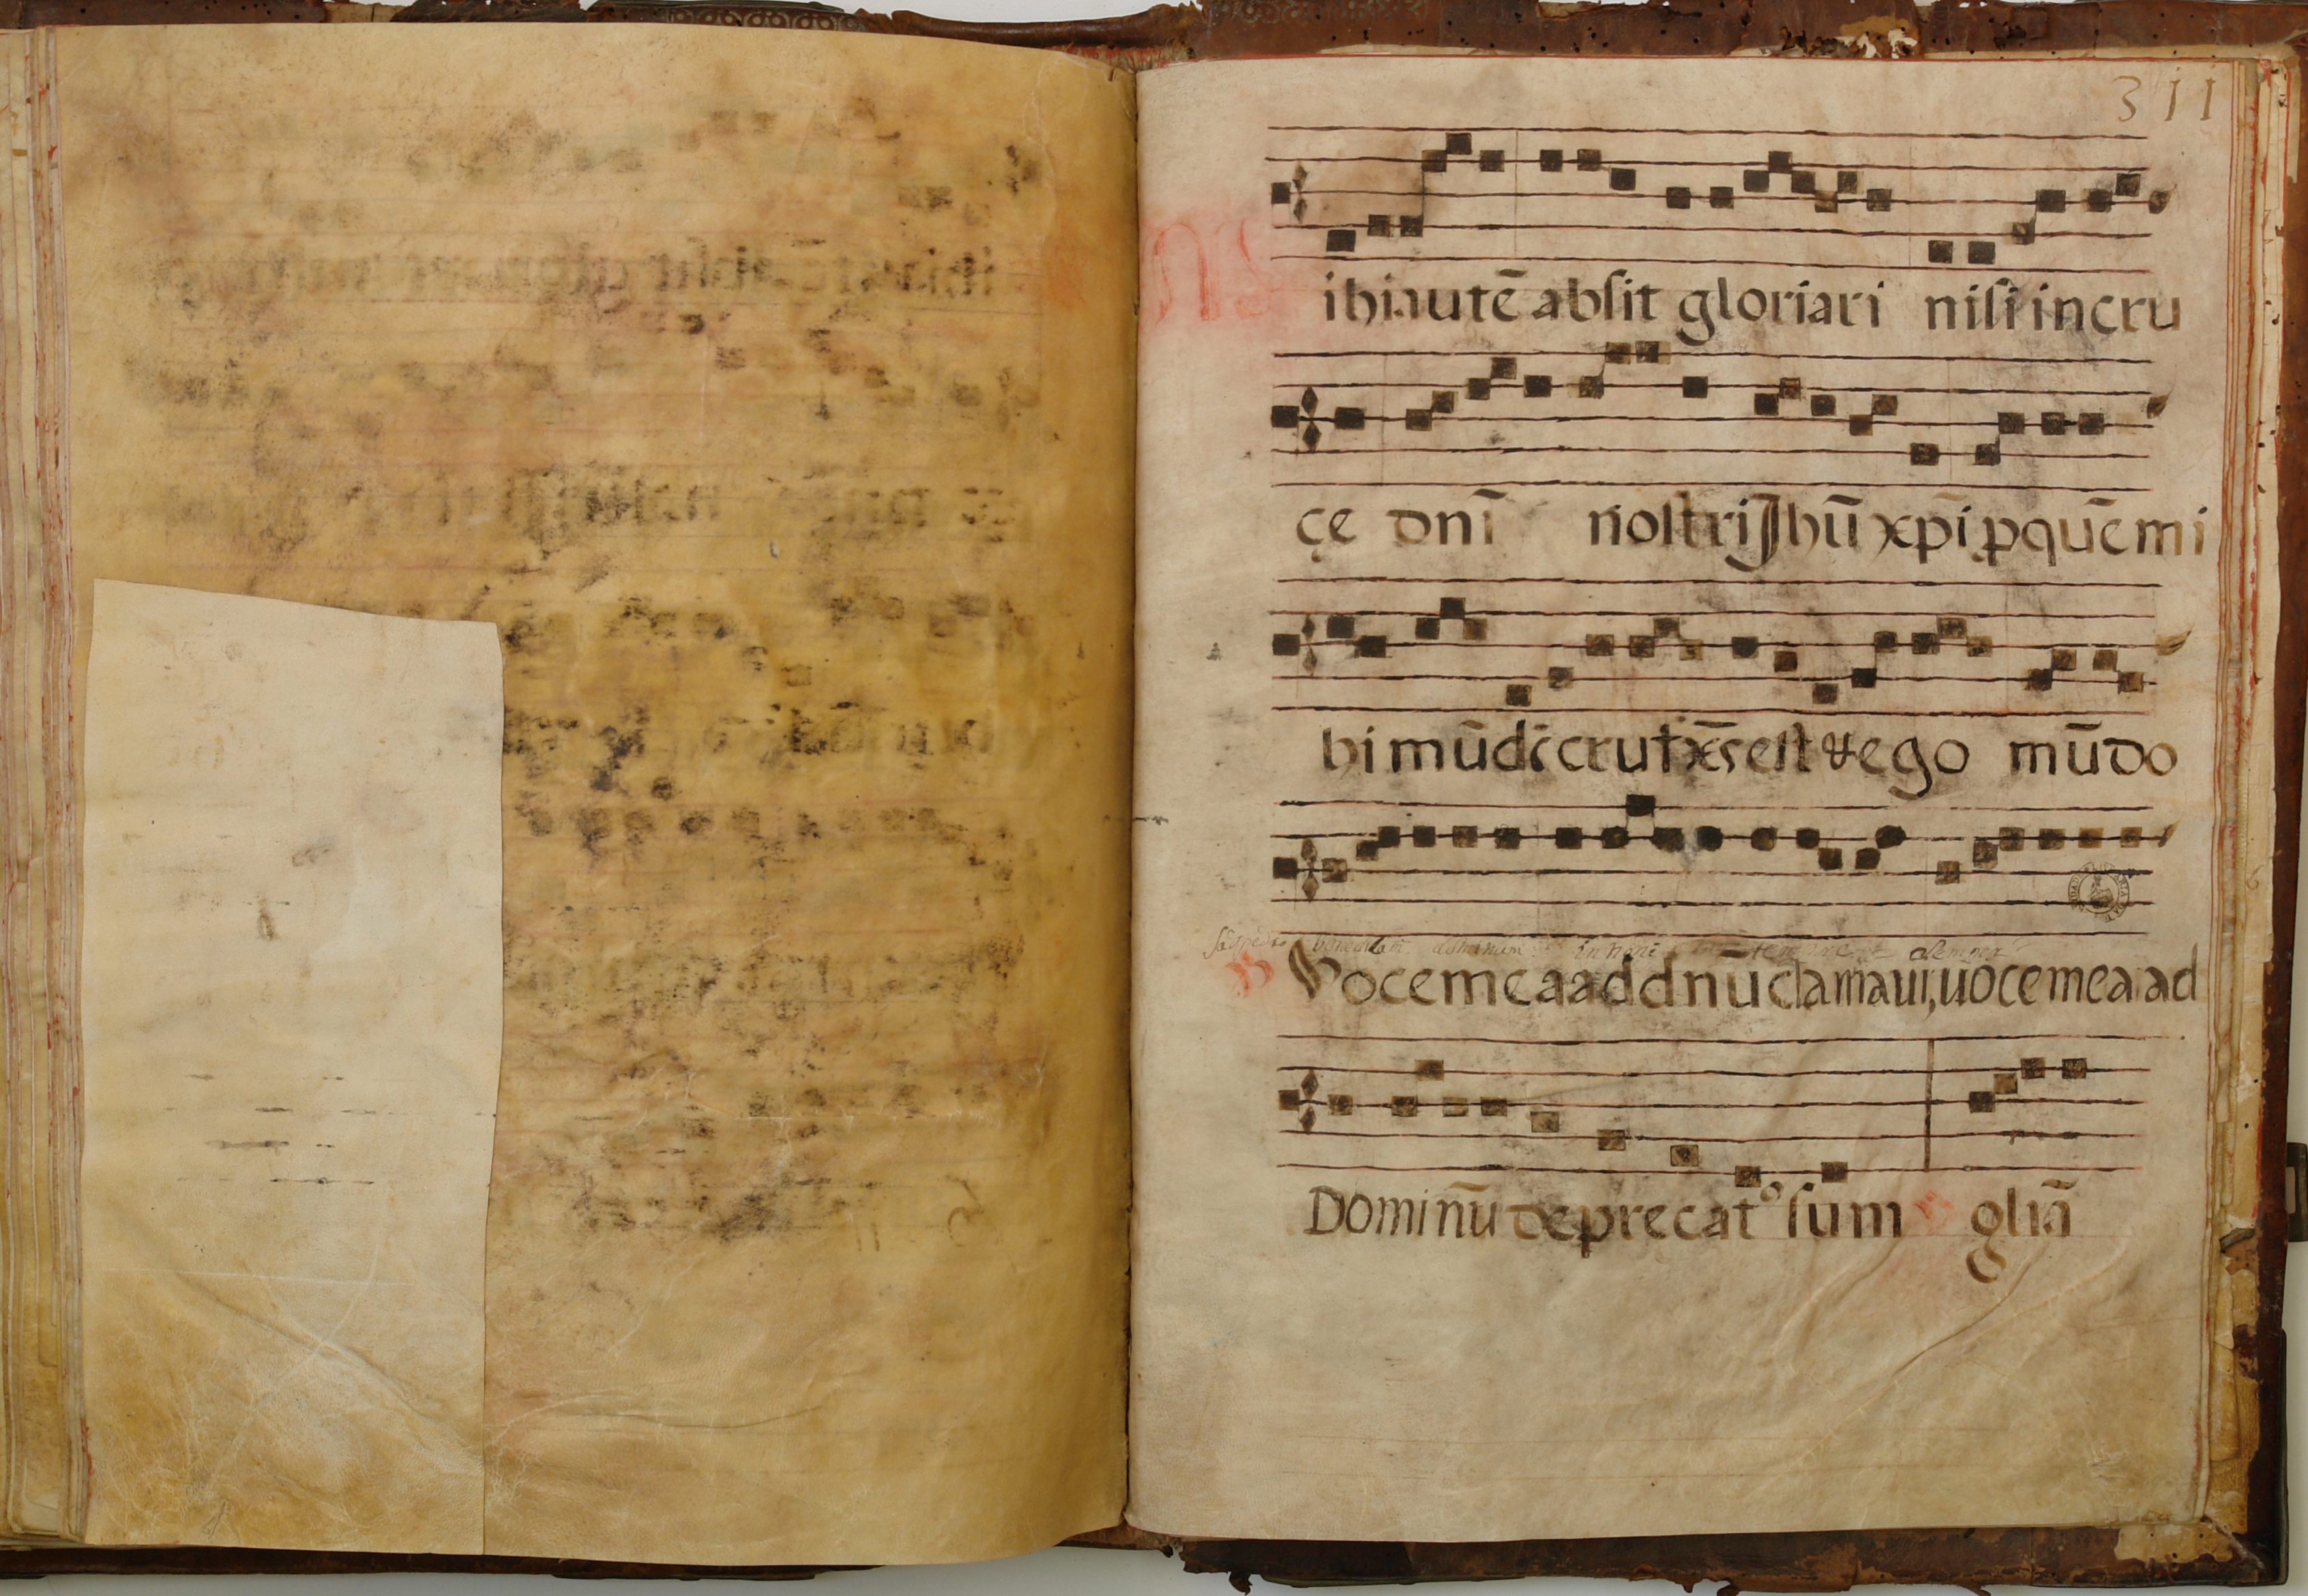 311
Mihi autē absit gloriari nisi in cru
cę dnī nostri Jhū xpī p quē mi
hi mūdi crutxs est & ego mūdo
Voce mea ad dnū clamaui, uoce mea ad
Dominū deprecat⁹ sum gliā